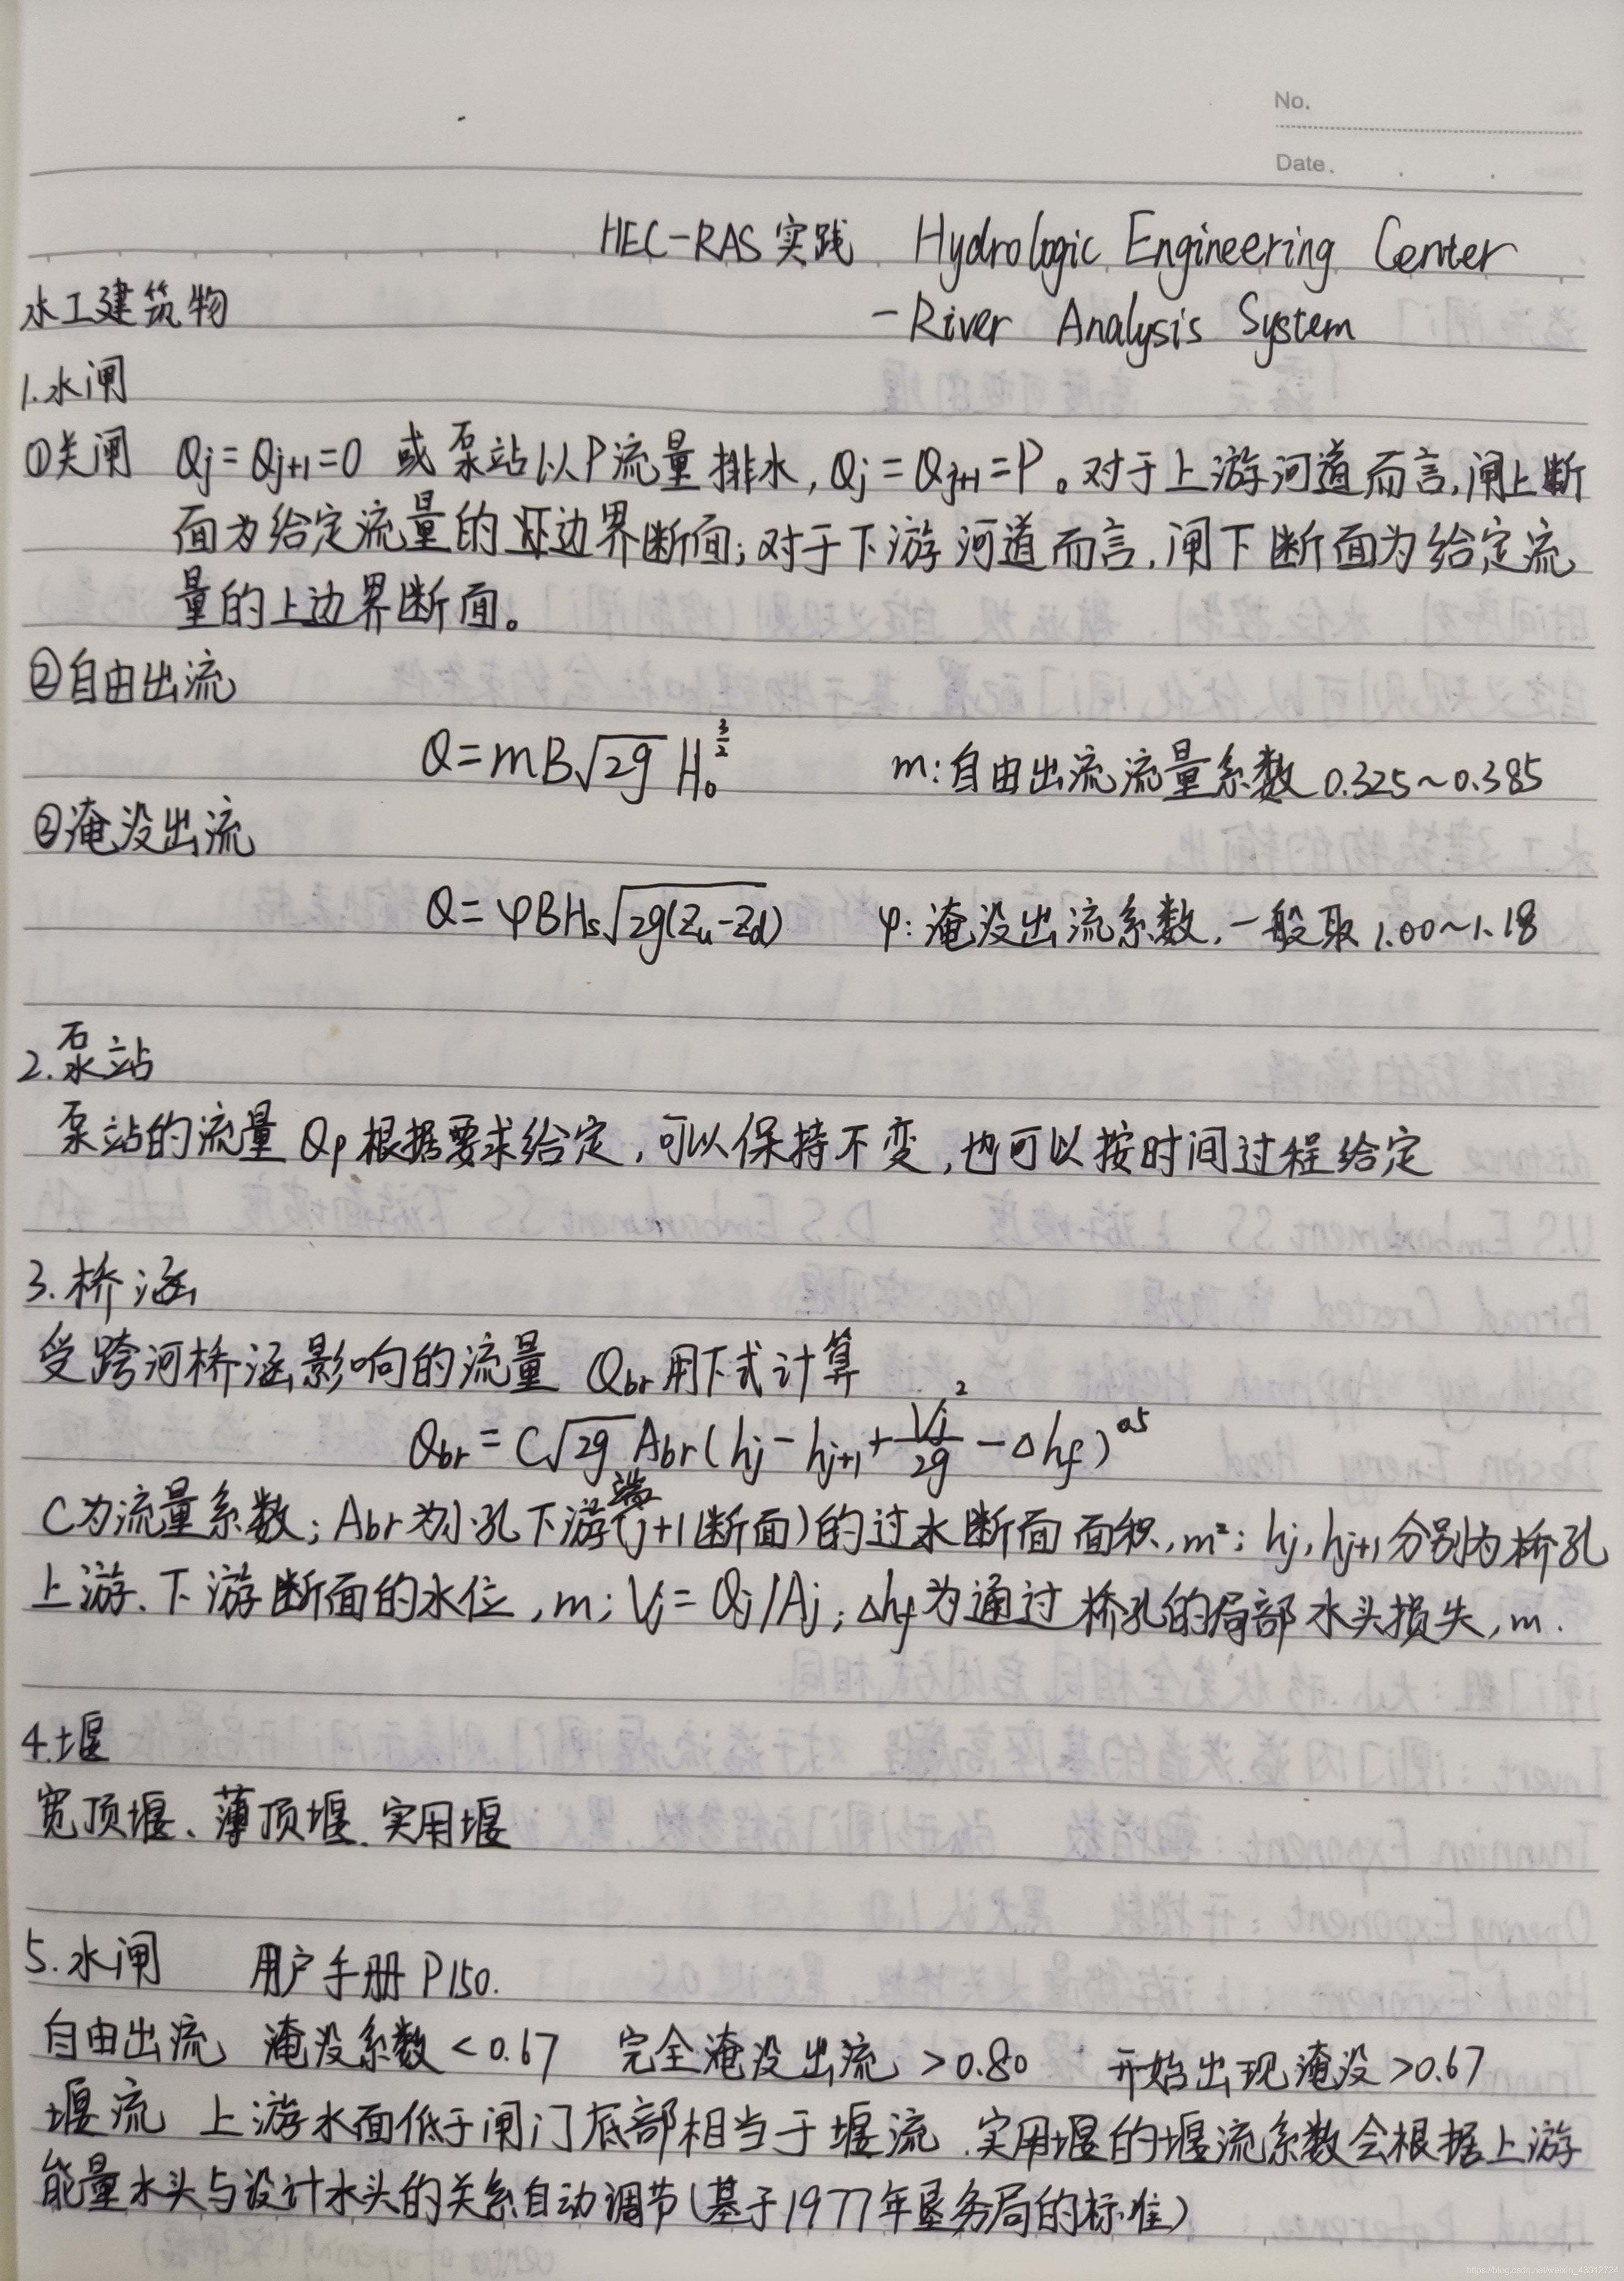 No.
Date.
HEC-RAS实践 Hydrologic Engineering Center
水工建筑物 -River Analysis System
1.水闸
①关闸 Qj=Qj+1=0 或泵站以P流量排水,Qj=Qj+1=P。对于上游河道而言,闸上断
面为给定流量的边界断面;对于下游河道而言,闸下断面为给定流
量的上边界断面。
②自由出流
Q=mB√2g H₀^(3/2) m:自由出流流量系数 0.325~0.385
③淹没出流
Q=φBHs√2g(Zu-Zd) φ:淹没出流系数,一般取1.00~1.18
石
2.泵站
泵站的流量Qp根据要求给定,可以保持不变,也可以按时间过程给定
3.桥涵
受跨河桥涵影响的流量 Qbr用下式计算
Qbr=C√2g Abr(hj-hj+1+Vj²/2g-Δhf)^0.5
C为流量系数;Abr为小孔下游端(j+1断面)的过水断面面积,m²;hj,hj+1分别为桥孔
上游、下游断面的水位,m;Vj=Qj/Aj;Δhf为通过桥孔的局部水头损失,m.
4.堰
宽顶堰、薄顶堰、实用堰
5.水闸 用户手册P150.
自由出流 淹没系数<0.67 完全淹没出流>0.80 开始出现淹没>0.67
堰流 上游水面低于闸门底部相当于堰流.实用堰的堰流系数会根据上游
能量水头与设计水头的关系自动调节(基于1977年垦务局的标准)
https://blog.csdn.net/weixin_43012724